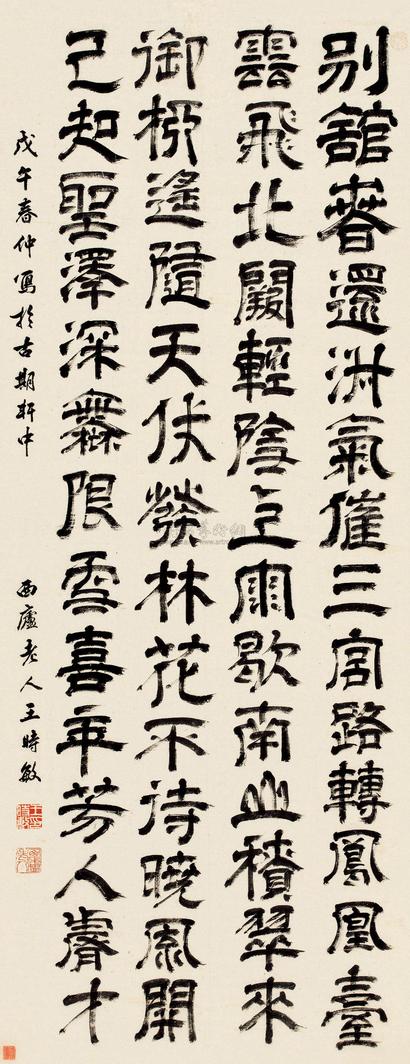 別舘春還淑氣催三宮路轉鳳凰臺
雲飛北闕輕陰立雨歇南山積翠來
御柳遙隨天仗發林花不待曉風開
已知聖澤深無限雪喜年芳入睿才
戊午春仲寫於古期軒中 西廬老人王時敏